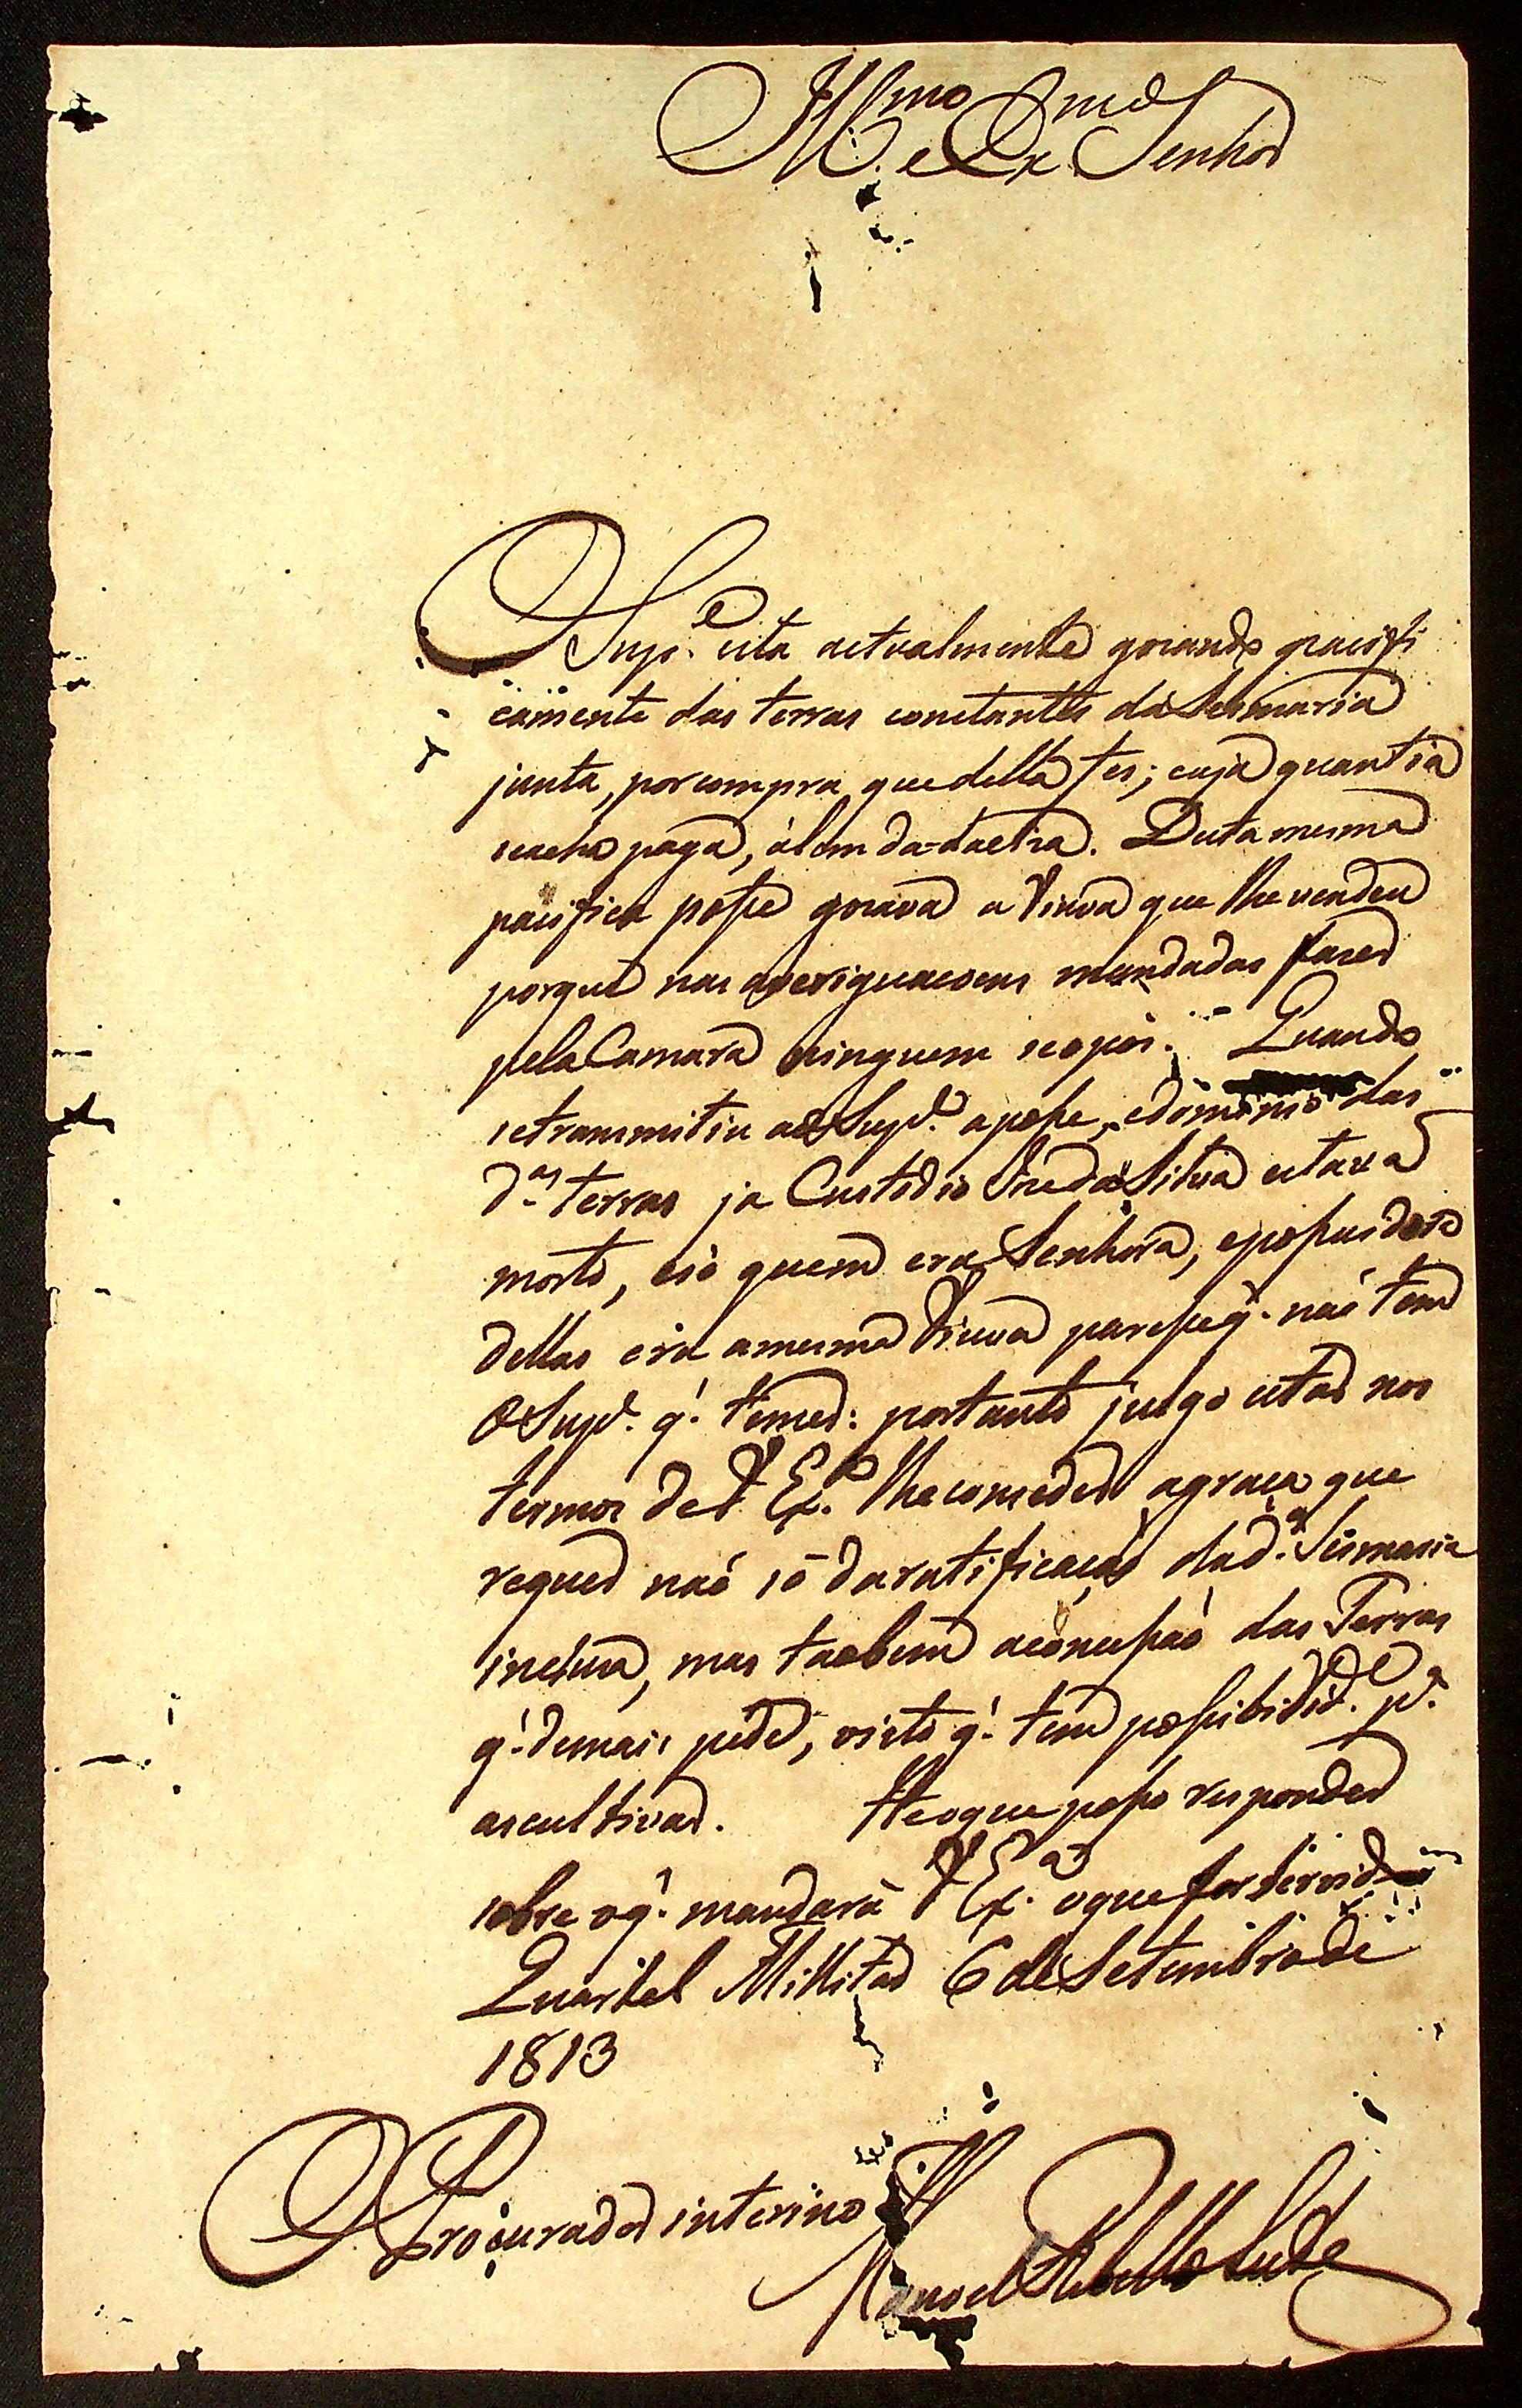 Ill.mo e Ex.mo Senhor
O Sup.e está actualmente gozando pacifi
camente das terras constantes da Sesmaria
junta, por compra que della fes; cuja quantia
seacha paga, álem da
pacifica posse gozava a Viuva que lhe vendeu
porque nas averiguacoens mandadas fazer
pela Camara ninguem seopôs. Quando
setransmitiu ao Sup.e a posse, edominio das
d.as terras ja Custodio da Silva estava
morto, esó quem era Senhora, epossuidora
dellas era amesma Viuva q. naõ tem
O Sup.e q. temer: portanto julgo estar nos
termos de V Ex.a lheconceder agraca que
requer naõ só daratificacaõ dad.a Sesmaria
incluza, mas taobem das Terras
q. demais pede, visto q. tem possibilid.e p.a
ascultivar. Heoque posso responder
sobre oq. mandará V Ex.a oque for servido
Quartel Millitar 6 de Setembro de
1813
O Procurador interino
Manoel Rebello